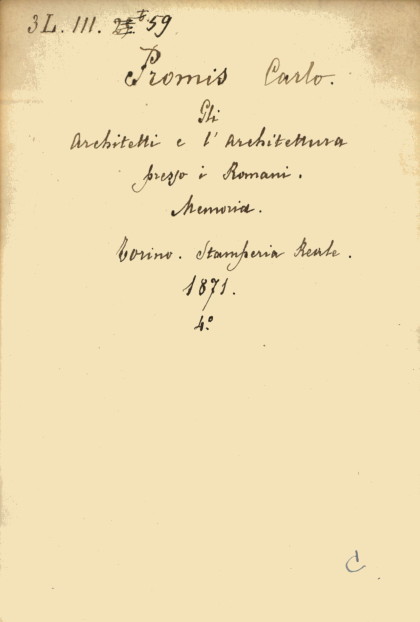 3L. III. 59
Promis Carlo.
Gli
Architetti e l'Architettura
presso i Romani.
Memoria.
Torino. Stamperia Reale.
1871.
4.º
C